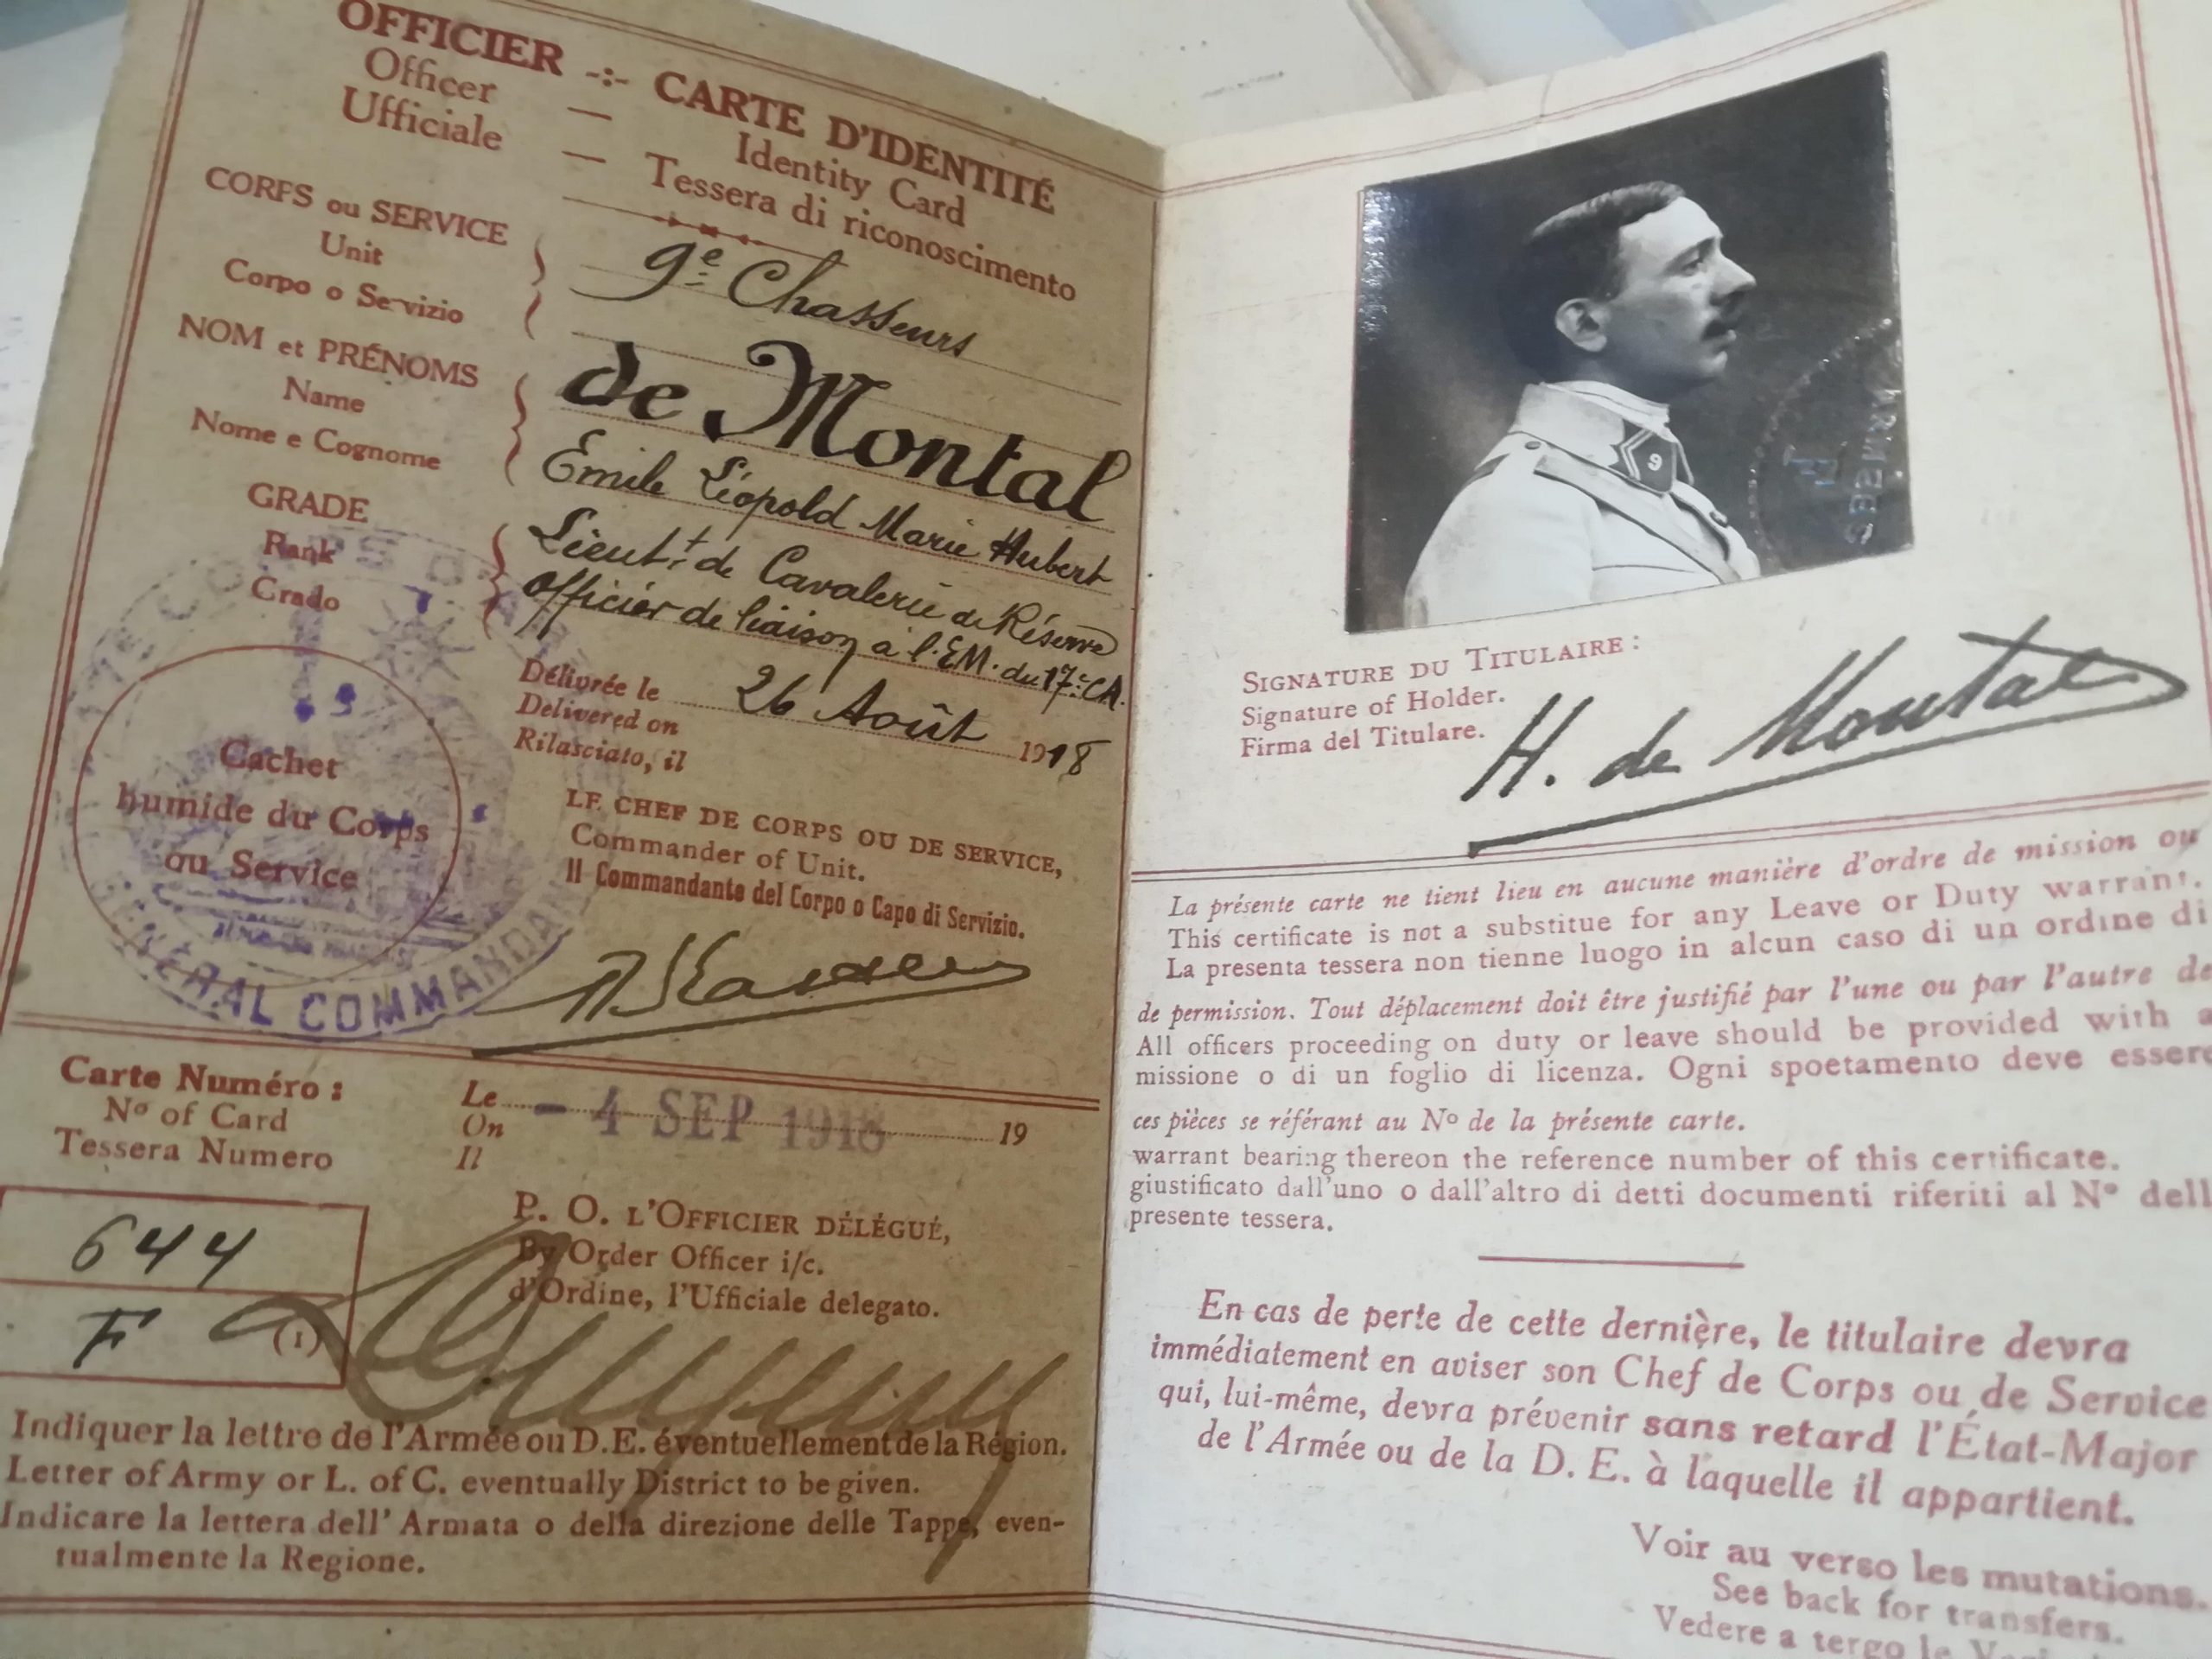 OFFICIER -:- CARTE D'IDENTITÉ
Officer — Identity Card
Ufficiale — Tessera di riconoscimento
CORPS ou SERVICE
Unit
Corpo o Servizio
9e Chasseurs
NOM et PRÉNOMS
Name
Nome e Cognome
de Montal
Emile Léopold Marie Hubert
GRADE
Rank
Grado
Lieutt. de Cavalerie de Réserve
officier de liaison à l'E.M. du 17e C.A.
Délivrée le 26 Août 1918
Delivered on
Rilasciato, il
Cachet
humide du Corps
ou Service
GÉNÉRAL COMMANDANT
LE CHEF DE CORPS OU DE SERVICE,
Commander of Unit.
Il Commandante del Corpo o Capo di Servizio.
Carte Numéro :
No of Card
Tessera Numero
Le - 4 SEP 1918 19
On
Il
644
F (1)
P. O. L'OFFICIER DÉLÉGUÉ,
By Order Officer i/c.
d'Ordine, l'Ufficiale delegato.
Indiquer la lettre de l'Armée ou D.E. éventuellement de la Région.
Letter of Army or L. of C. eventually District to be given.
Indicare la lettera dell' Armata o della direzione delle Tappe, even-
tualmente la Regione.
9
ARMEES
SIGNATURE DU TITULAIRE :
Signature of Holder.
Firma del Titulare.
H. de Montal
La présente carte ne tient lieu en aucune manière d'ordre de mission ou
This certificate is not a substitue for any Leave or Duty warrant.
La presenta tessera non tienne luogo in alcun caso di un ordine di
de permission. Tout déplacement doit être justifié par l'une ou par l'autre de
All officers proceeding on duty or leave should be provided with a
missione o di un foglio di licenza. Ogni spoetamento deve essere
ces pièces se référant au No de la présente carte.
warrant bearing thereon the reference number of this certificate.
giustificato dall'uno o dall'altro di detti documenti riferiti al No dell
presente tessera.
En cas de perte de cette dernière, le titulaire devra
immédiatement en aviser son Chef de Corps ou de Service
qui, lui-même, devra prévenir sans retard l'État-Major
de l'Armée ou de la D. E. à laquelle il appartient.
Voir au verso les mutations.
See back for transfers.
Vedere a tergo le